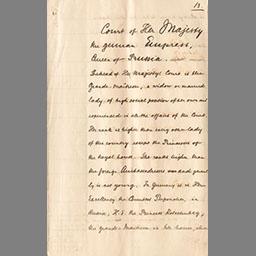 13.
Court of Her Majesty
the German Empress,
Queen of Prussia.
Instead of His Majestys Court is the
Grande-maitresse, a widow or married
lady of high social position at an own and
experienced in all the affairs of the Court.
She rank is higher than every other lady
of the country except the Princesses of
the royal house. She ranks higher than
the foreign Ambassadors and
is not young. In Germany is is Her
Excellency the Countess
Russia, H. S. the Princess
the Grande Maitresse is